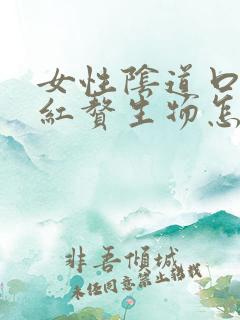 女性陰道口
紅贅生物怎
非吾傾城
未经同意禁止转载